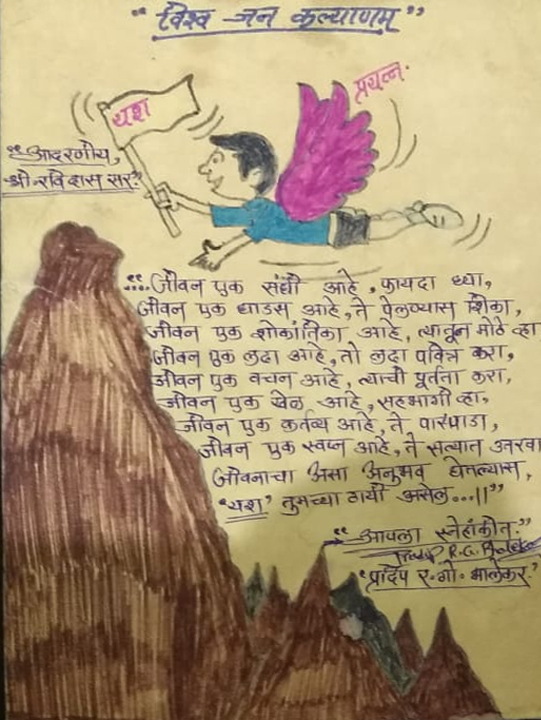 “विश्व जन कल्याणम”
प्रयत्न.
यश
“आदरणीय,
श्री. रविदास सर.”
“...जीवन एक संधी आहे, फायदा घ्या,
जीवन एक धाडस आहे, ते पेलण्यास शिका,
जीवन एक शोकांतिका आहे, त्यातून मोठे व्हा
जीवन एक लढा आहे, तो लढा पवित्र करा,
जीवन एक वचन आहे, त्याची पूर्तता करा,
जीवन एक खेळ आहे, सहभागी व्हा,
जीवन एक कर्तव्य आहे, ते पारपाडा,
जीवन एक स्वप्न आहे, ते सत्यात उतरवा
जीवनाचा असा अनुभव घेतल्यास,
‘यश’ तुमच्या ठायी असेल...।।”
“आपला स्नेहांकीत.”
R.G.
“प्रदिप र. गो. भालेकर.”